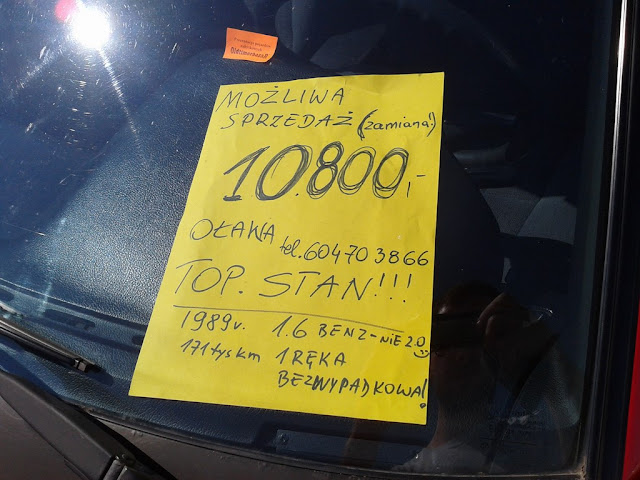 MOŻLIWA
SPRZEDAŻ (zamiana!)
10.800,-
OŁAWA tel. 604703866
TOP. STAN!!!
1989r. 1.6 BENZ-NIE 2.0
171tyskm 1RĘKA
BEZWYPADKOWA!